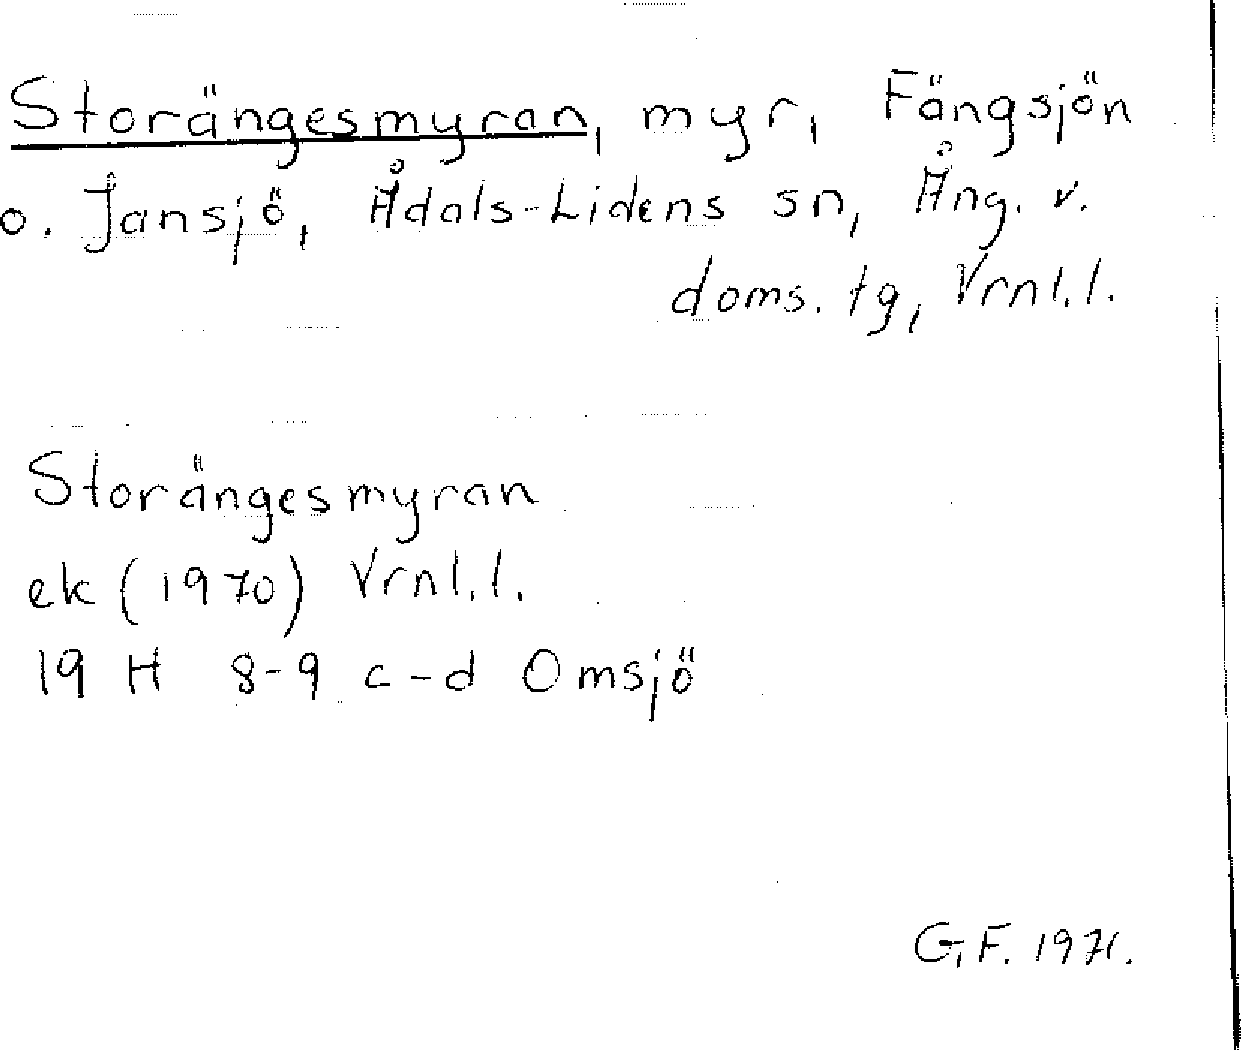 Storängesmyran, myr, Fängsjön
o. Jansjö, Ådals-Lidens sn, Ång. v.
doms. tg, Vrnl.l.
Storängesmyran
ek (1970) Vrnl.l.
19 H 8-9 c-d Omsjö
G.F. 1971.